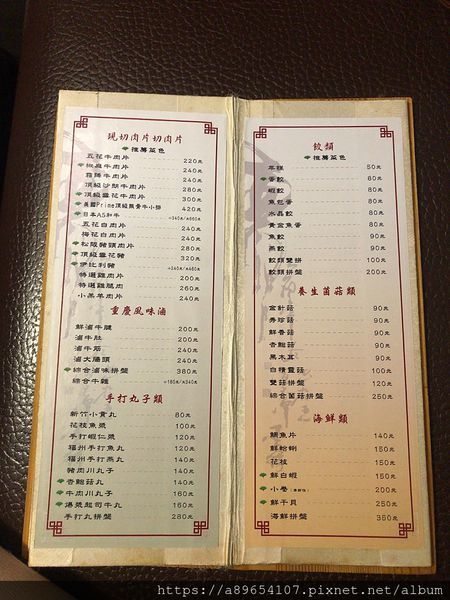 現切肉片切肉片
推薦菜色
五花牛肉片 220元
椒麻牛肉片 240元
霜降牛肉片 240元
頂級沙朗牛肉片 280元
頂級雪花牛肉片 300元
美國Prime頂級無骨牛小排 420元
日本A5和牛 =340元/=660元
五花白肉片 240元
梅花白肉片 240元
松阪豬頸肉片 280元
頂級雪花豬 320元
伊比利豬 =240元/=460元
特選雞腿肉 260元
小羔羊肉片 240元
重慶風味滷
鮮滷牛腱 200元
滷牛肚 200元
滷牛筋 200元
滷大腸頭 240元
綜合滷味拼盤 380元
綜合牛雜 =180元/=340元
手打丸子類
新竹小貢丸 80元
花枝魚漿 100元
手打蝦仁漿 140元
福州手打魚丸 140元
福州手打燕丸 140元
豬肉川丸子 140元
杏鮑菇丸 140元
牛肉川丸子 160元
爆漿起司牛丸 160元
手打丸拼盤 280元
餃類
推薦菜色
年糕 50元
蛋餃 80元
蝦餃 80元
魚包蛋 80元
水晶餃 80元
黃金魚蛋 80元
魚餃 80元
燕餃 80元
餃類雙拼 100元
餃類拼盤 200元
養生菌菇類
金針菇 90元
秀珍菇 90元
鮮香菇 90元
杏鮑菇 90元
黑木耳 90元
白精靈菇 90元
雙菇拼盤 140元
綜合菌菇拼盤 260元
海鮮類
鯛魚片 140元
鮮蛤蜊 150元
花枝 150元
鮮白蝦 150元
小卷 200元
鮮干貝 250元
海鮮拼盤 350元
https://a89654107.pixnet.net/album